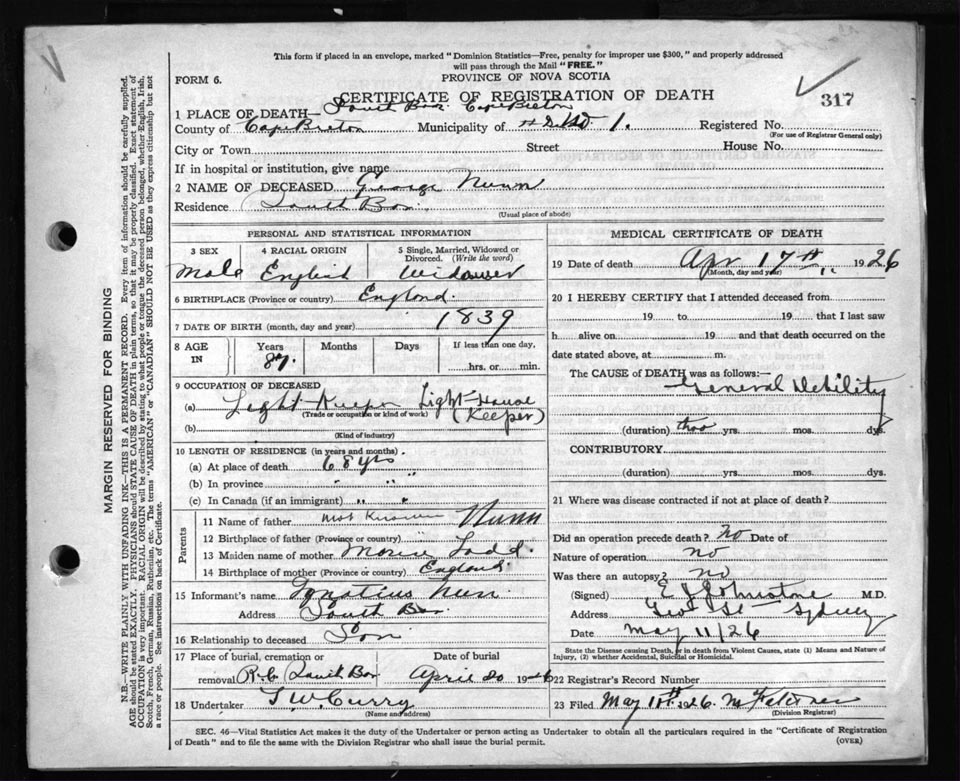 This form if placed in an envelope, marked "Dominion Statistics—Free, penalty for improper use $300," and properly addressed
will pass through the Mail "FREE."
PROVINCE OF NOVA SCOTIA
FORM 6.
CERTIFICATE OF REGISTRATION OF DEATH
317
1 PLACE OF DEATH— South Bar Cape Breton
County of Cape Breton Municipality of No 1. Registered No.
(For use of Registrar General only)
City or Town Street House No.
If in hospital or institution, give name
2 NAME OF DECEASED George Nunn
Residence South Bar.
(Usual place of abode)
PERSONAL AND STATISTICAL INFORMATION
3 SEX 4 RACIAL ORIGIN 5 Single, Married, Widowed or Divorced. (Write the word)
Male English Widower
6 BIRTHPLACE (Province or country) England.
7 DATE OF BIRTH (month, day and year) 1839
8 AGE IN Years Months Days If less than one day,
87. hrs. or min.
9 OCCUPATION OF DECEASED
(a) Light Keeper Light-House (Keeper)
(Trade or occupation or kind of work)
(b)
(Kind of industry)
10 LENGTH OF RESIDENCE (in years and months)
(a) At place of death 68 yrs
(b) In province " "
(c) In Canada (if an immigrant) " "
Parents
11 Name of father not known Nunn
12 Birthplace of father (Province or country)
13 Maiden name of mother Ladd.
14 Birthplace of mother (Province or country) England.
15 Informant's name Ignatius Nunn
Address South Bar.
16 Relationship to deceased Son
17 Place of burial, cremation or removal R.C. South Bar Date of burial April 20 1926
18 Undertaker T. W. Curry
(Name and address)
MEDICAL CERTIFICATE OF DEATH
19 Date of death Apr 17th, 1926
(Month, day and year)
20 I HEREBY CERTIFY that I attended deceased from
19 to 19 that I last saw
h alive on 19 and that death occurred on the
date stated above, at m.
The CAUSE of DEATH was as follows:—
General Debility
(duration) yrs. mos. dys.
CONTRIBUTORY
(duration) yrs. mos. dys.
21 Where was disease contracted if not at place of death?
Did an operation precede death? No Date of
Nature of operation no
Was there an autopsy? no
(Signed) E J Johnstone M.D.
Address Geo St - Sydney
Date May 11/26
State the Disease causing Death, or in death from Violent Causes, state (1) Means and Nature of
Injury, (2) whether Accidental, Suicidal or Homicidal.
22 Registrar's Record Number
23 Filed May 1926.
(Division Registrar)
SEC. 46—Vital Statistics Act makes it the duty of the Undertaker or person acting as Undertaker to obtain all the particulars required in the "Certificate of Registration
of Death" and to file the same with the Division Registrar who shall issue the burial permit.
(OVER)
MARGIN RESERVED FOR BINDING
N.B.—WRITE PLAINLY WITH UNFADING INK—THIS IS A PERMANENT RECORD. Every item of information should be carefully supplied.
AGE should be stated EXACTLY. PHYSICIANS should STATE CAUSE OF DEATH in plain terms, so that it may be properly classified. Exact statement of
OCCUPATION is very important. RACIAL ORIGIN will be described by stating to what people or tongue the deceased person belonged, whether English, Irish,
Scotch, French, German, Russian, Ruthenian, etc. The terms "AMERICAN" or "CANADIAN" SHOULD NOT BE USED as they express citizenship but not
a race or people. See instructions on back of Certificate.